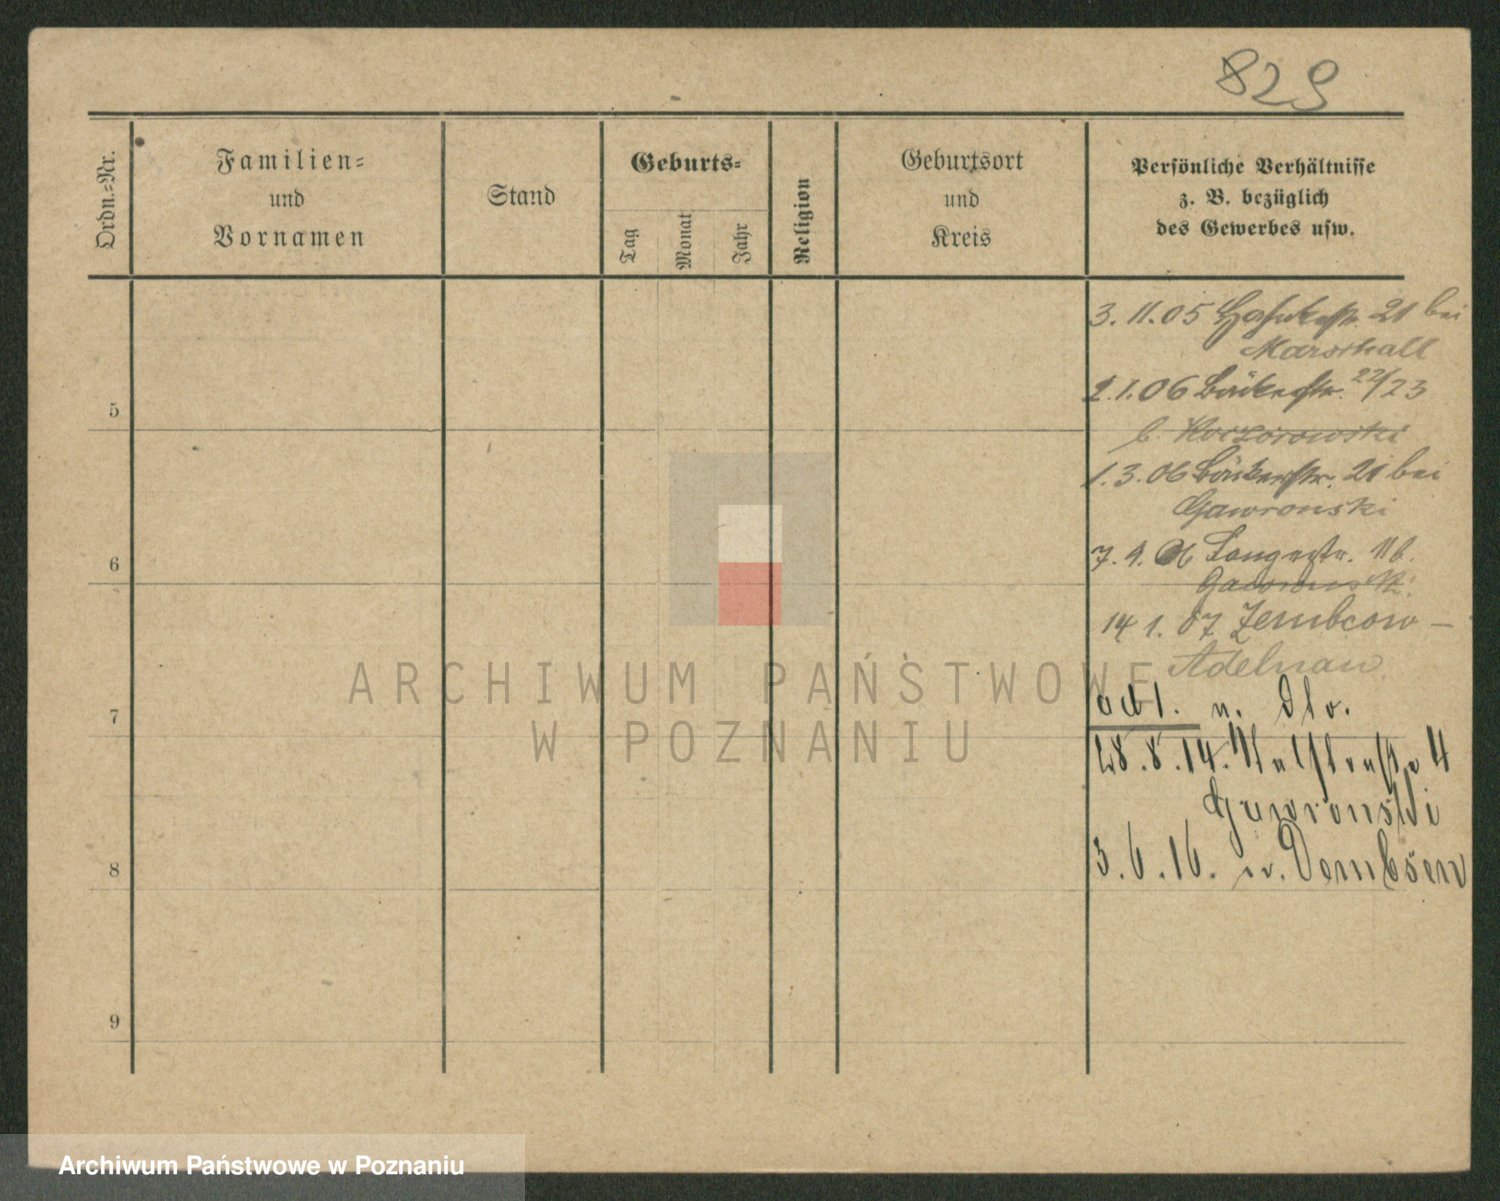 829
Ordn.-Nr.
Familien-
und
Vornamen
Stand
Geburts-
Tag
Monat
Jahr
Religion
Geburtsort
und
Kreis
Persönliche Verhältnisse
z. B. bezüglich
des Gewerbes usw.
3.11.05 21 bei
Marschall
2.1.06 Bäckerstr. 22/23
b. Koczorowski
5
1.3.06 Bäckerstr. 21 bei
Gawronski
7.9.06 Langestr. 11 b.
Gawronski
6
14 1. 07 Zembcow –
Adelnau
7
28.8.14. 4
Gawronski
3.6.16. n. Dombsen
8
9
ARCHIWUM PAŃSTWOWE
W POZNANIU
Archiwum Państwowe w Poznaniu